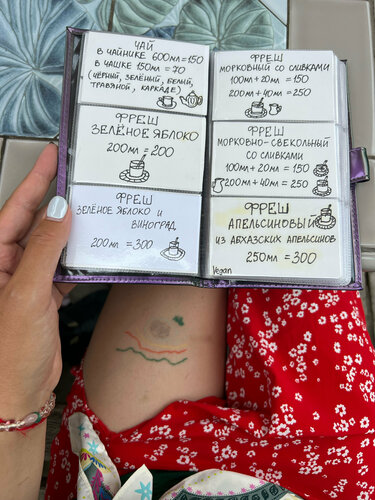 ЧАЙ
В ЧАЙНИКЕ 600МЛ=150
В ЧАШКЕ 150МЛ=70
(ЧЁРНЫЙ, ЗЕЛЁНЫЙ, БЕЛЫЙ,
ТРАВЯНОЙ, КАРКАДЕ)
ФРЕШ
ЗЕЛЁНОЕ ЯБЛОКО
200МЛ=200
ФРЕШ
ЗЕЛЁНОЕ ЯБЛОКО И
ВИНОГРАД
200МЛ=300
ФРЕШ
МОРКОВНЫЙ СО СЛИВКАМИ
100МЛ+20МЛ=150
200МЛ+40МЛ=250
ФРЕШ
МОРКОВНО-СВЕКОЛЬНЫЙ
СО СЛИВКАМИ
100МЛ+20МЛ=150
200МЛ+40МЛ=250
ФРЕШ
АПЕЛЬСИНОВЫЙ
ИЗ АБХАЗСКИХ АПЕЛЬСИНОВ
250МЛ=300
Vegan